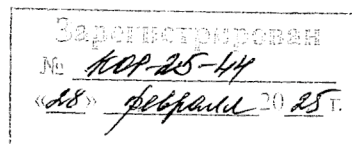 Зарегистрирован
№ КОР-25-44
«28» февраля 2025 г.